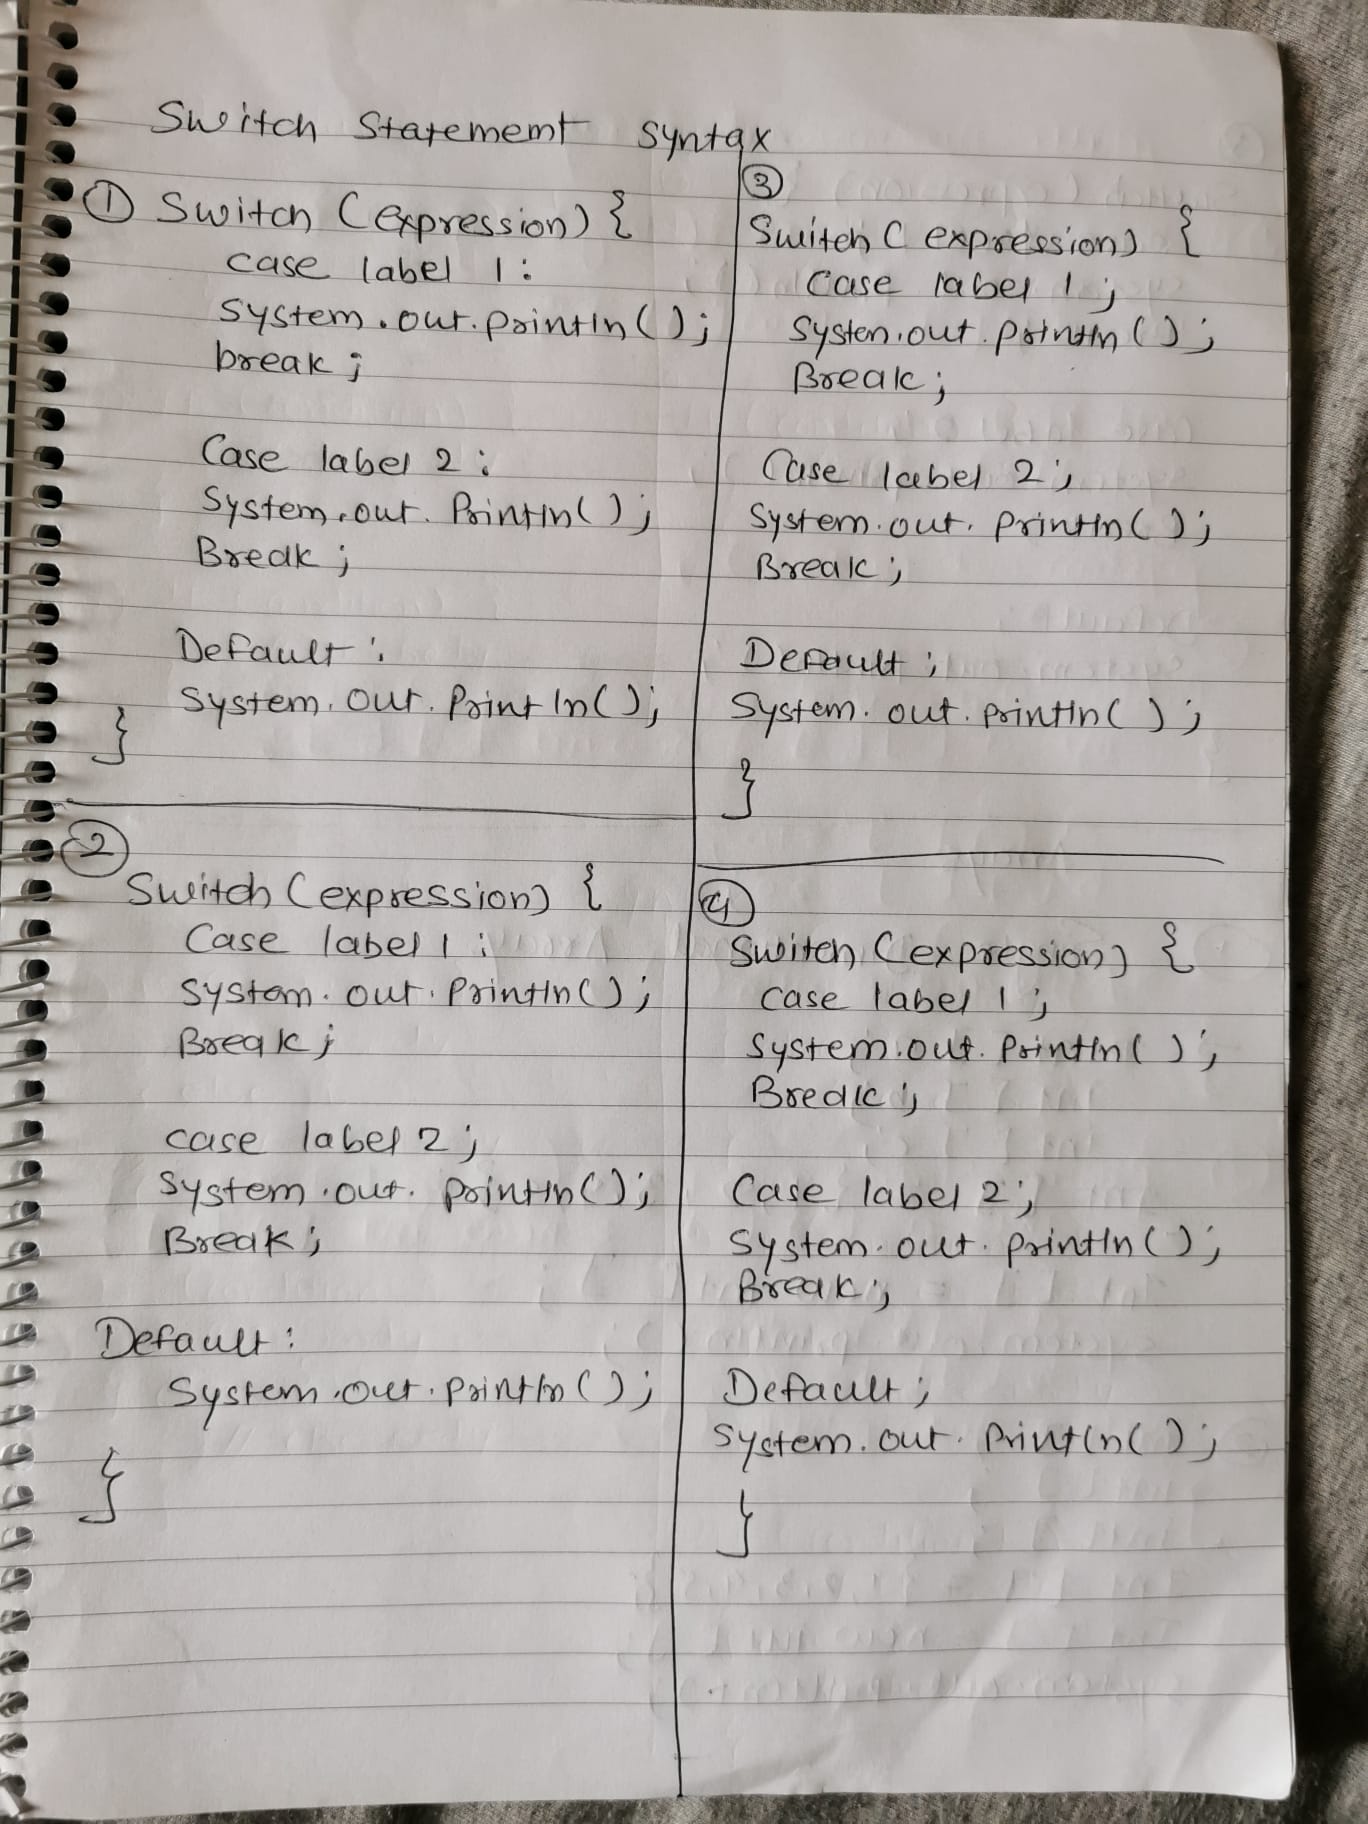 Switch Statememt Syntax
① Switch (expression) {
case label 1 :
System.out.println();
break;
Case label 2 :
System.out.Println();
Break;
Default :
System.out.Println();
}
②
Switch (expression) {
Case label 1 :
System.out.Println();
Break;
case label 2 ;
System.out.println();
Break;
Default :
System.out.println();
}
③
Switch ( expression) {
Case label 1 ;
Systen.out.println();
Break;
Case label 2 ;
System.out.println();
Break;
Default ;
System.out.println();
}
④
Switch (expression) {
case label 1 ;
System.out.Println();
Break;
Case label 2 ;
System.out.println();
Break;
Default ;
System.out.Println();
}